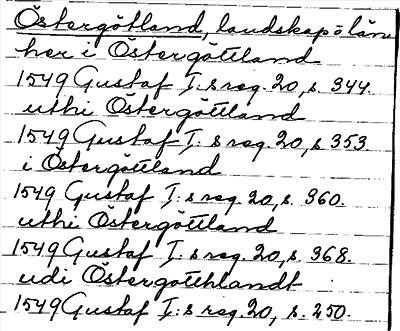 Östergötland, landskap o län
her i Östergöttland
1549 Gustaf I. s reg. 20, s. 344.
uthi Östergöttland
1549 Gustaf I. s reg. 20, s 353
i Östergöttland
1549 Gustaf I: s reg. 20, s. 360.
uthi Östergöttland
1549 Gustaf I. s reg. 20, s. 368.
udi Östergotthlandt
1549 Gustaf I: s reg. 20, s. 250.